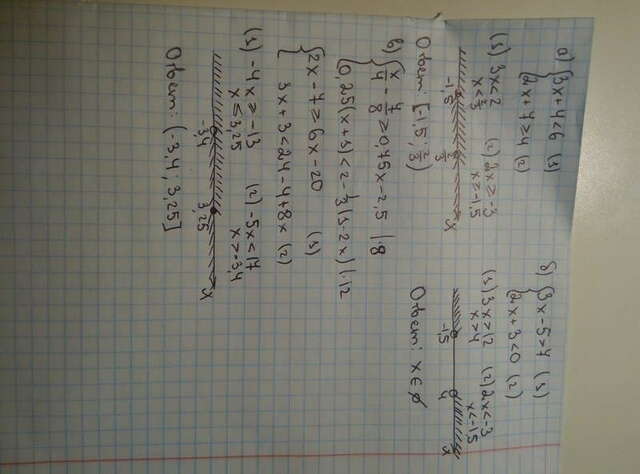 а) { 3x + 4 < 6 (1)
2x + 7 ≥ 4 (2)
(1) 3x < 2 (2) 2x ≥ -3
x < 2/3 x ≥ -1,5
-1,5 2/3 x
Ответ: [-1,5; 2/3)
б) { 3x - 5 > 7 (1)
2x + 3 < 0 (2)
(1) 3x > 12 (2) 2x < -3
x > 4 x < -1,5
-1,5 4 x
Ответ: x ∈ ∅
в) { x/4 - 7/8 ≥ 0,75x - 2,5 |·8
0,25(x + 1) < 2 - 1/3(1 - 2x) |·12
{ 2x - 7 ≥ 6x - 20 (1)
3x + 3 < 24 - 4 + 8x (2)
(1) -4x ≥ -13 (2) -5x < 17
x ≤ 3,25 x > -3,4
-3,4 3,25 x
Ответ: (-3,4; 3,25]